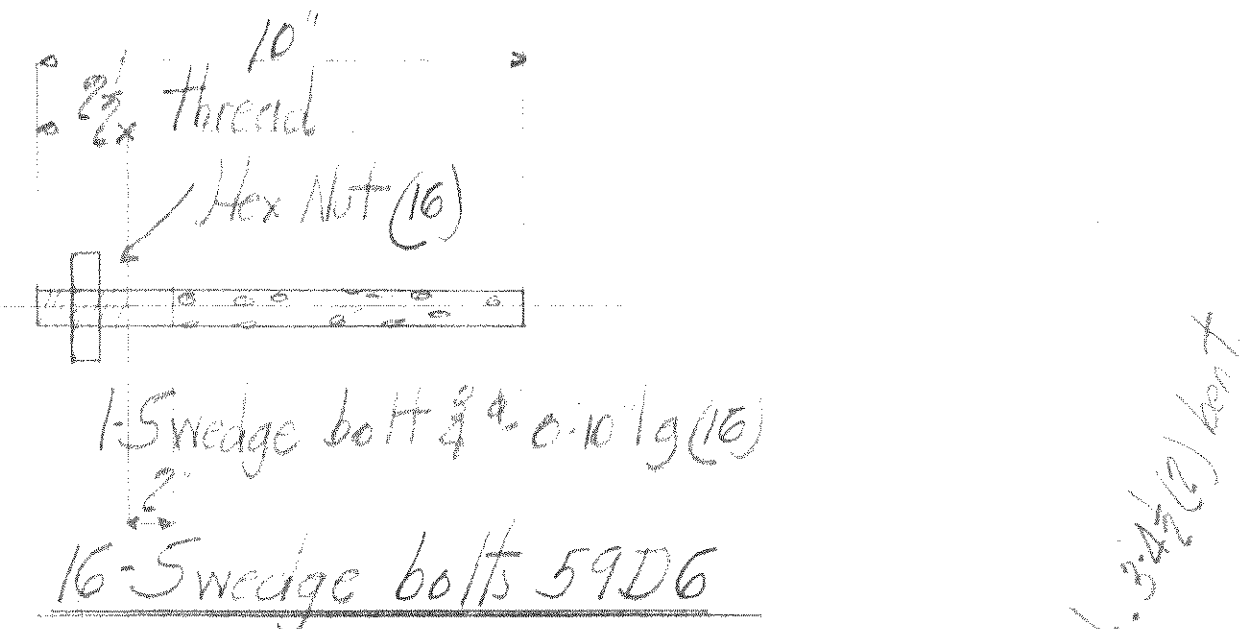 10"
2½ thread
Hex Nut (16)
1-Swedge bolt ¾ φ 0-10" lg (16)
2"
16-Swedge bolts 59D6
3-4½ (2) ben